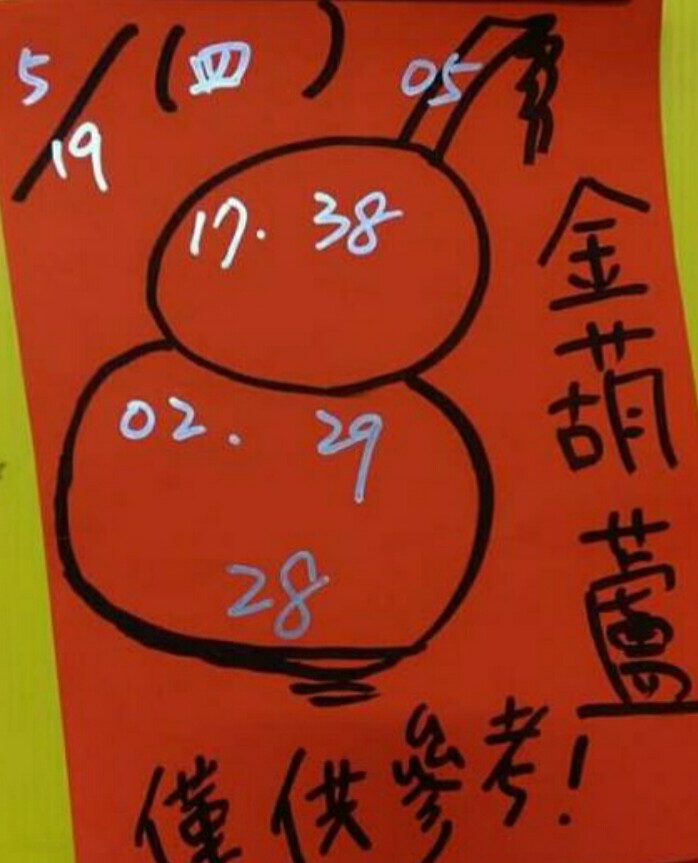 5/19 (四)
05
17. 38
02. 29
28
金葫蘆
僅供參考!